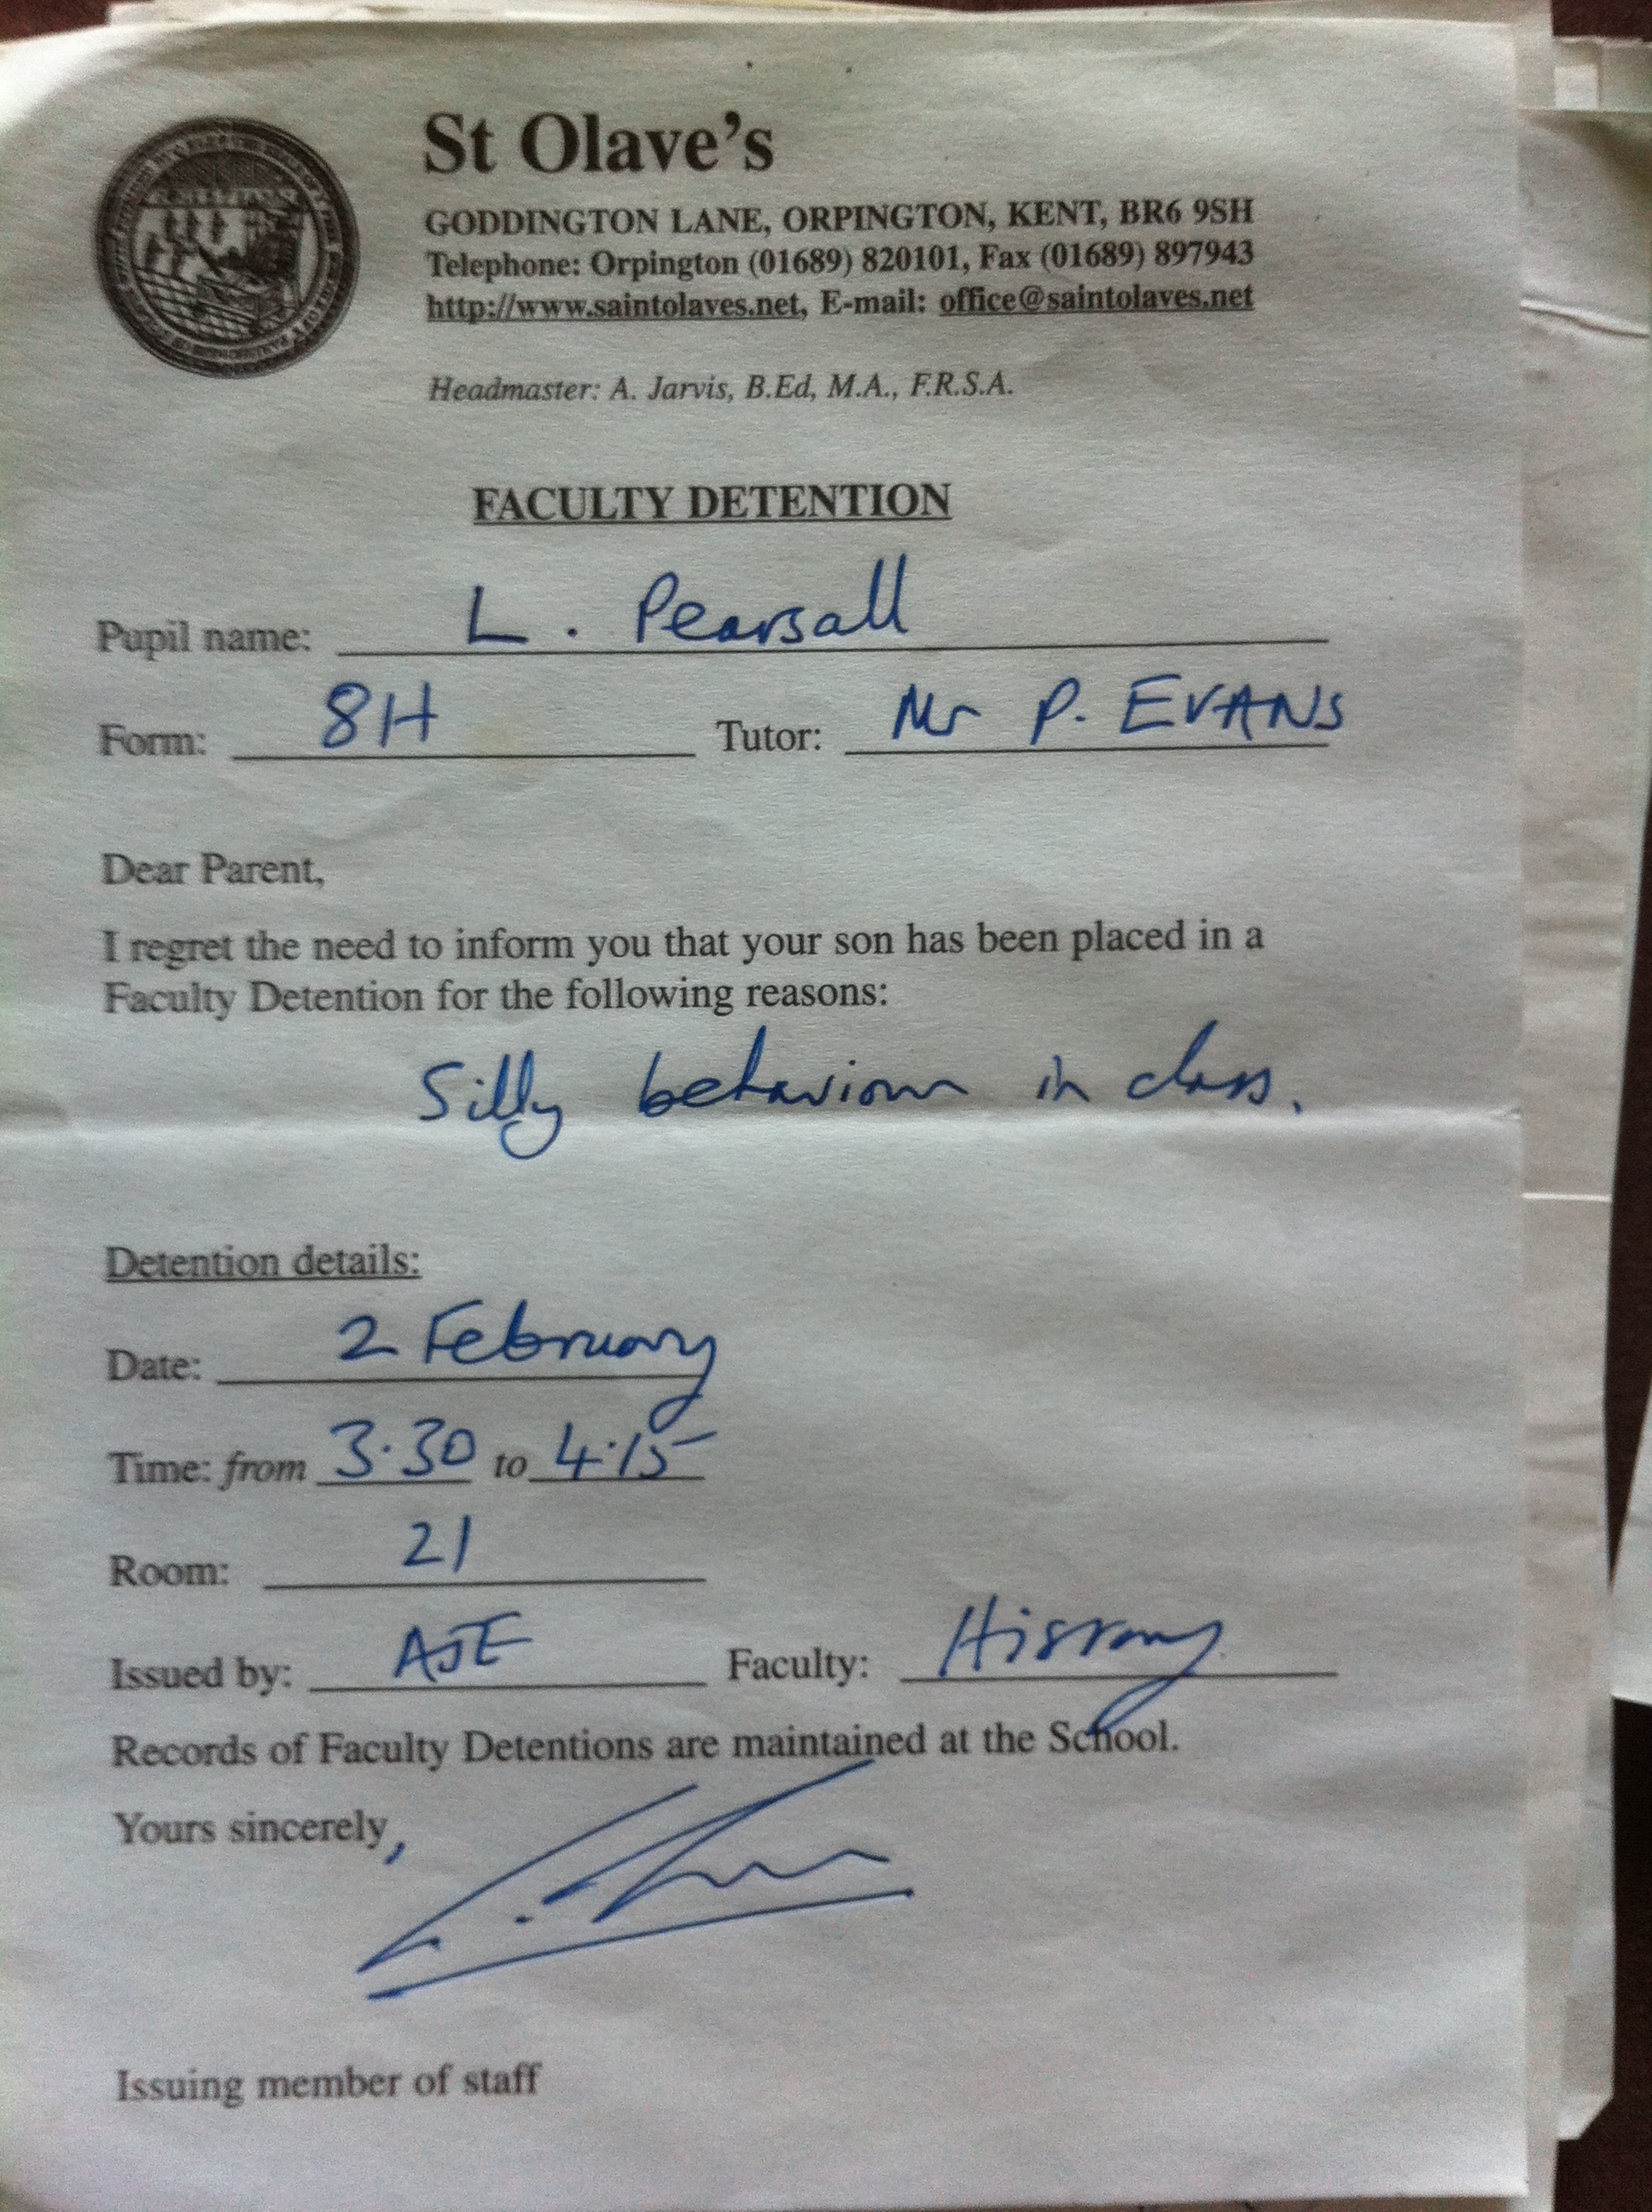 St Olave's
GODDINGTON LANE, ORPINGTON, KENT, BR6 9SH
Telephone: Orpington (01689) 820101, Fax (01689) 897943
http://www.saintolaves.net, E-mail: office@saintolaves.net
Headmaster: A. Jarvis, B.Ed, M.A., F.R.S.A.
FACULTY DETENTION
Pupil name: L. Pearsall
Form: 8H Tutor: Mr P. EVANS
Dear Parent,
I regret the need to inform you that your son has been placed in a
Faculty Detention for the following reasons:
Silly behaviour in class.
Detention details:
Date: 2 February
Time: from 3.30 to 4.15
Room: 21
Issued by: AJE Faculty: History
Records of Faculty Detentions are maintained at the School.
Yours sincerely,
Issuing member of staff